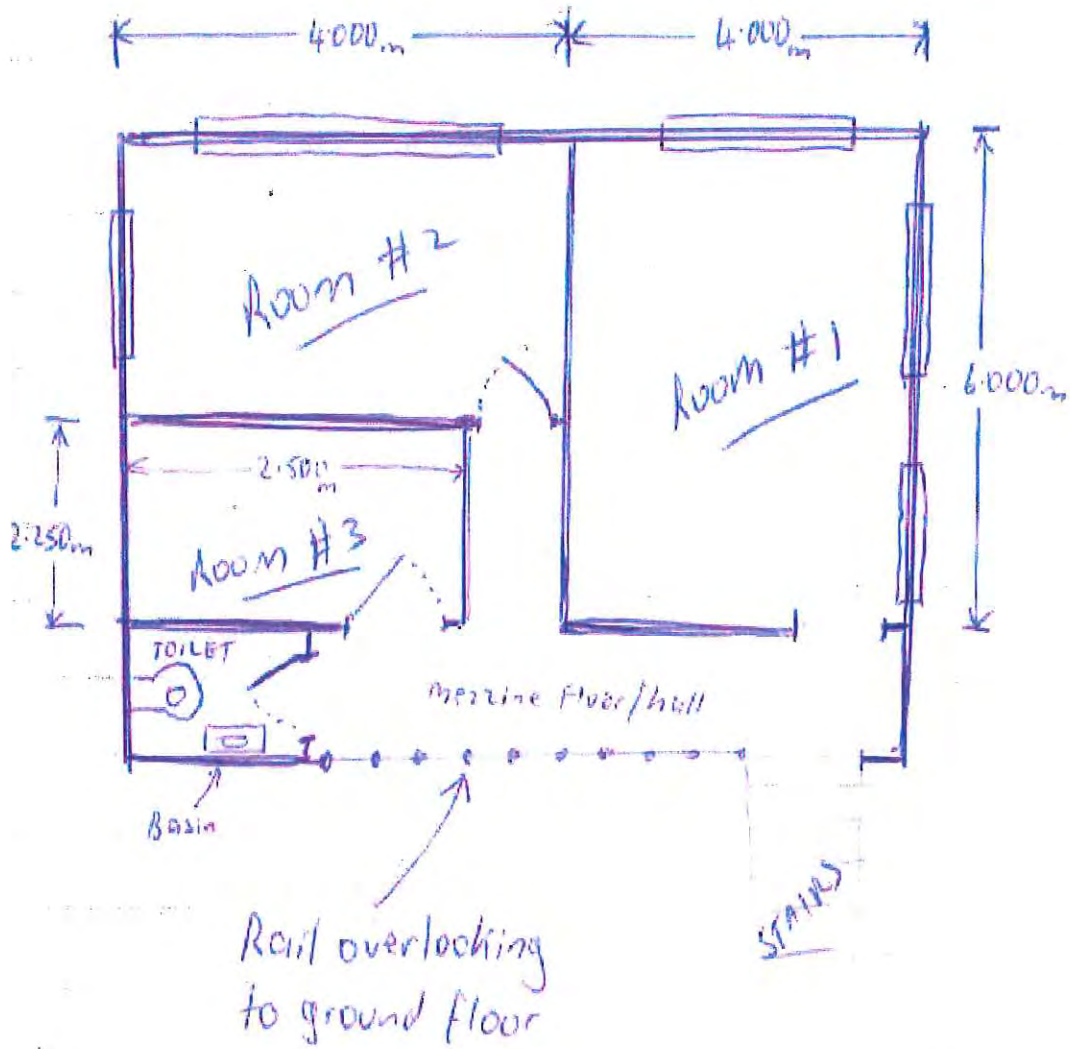 4.000m
4.000m
Room #2
Room #1
6.000m
2.500m
2.250m
Room #3
TOILET
Mezzine Floor/hall
Basin
STAIRS
Rail overlooking
to ground floor